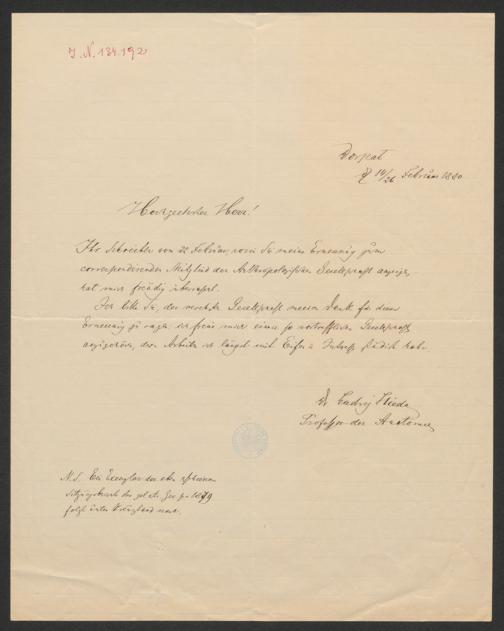 J. N. 134.192
Dorpat
d 14/26 Februar 1880
Hochgeehrter Herr!
Ihr Schreiben vom 22 Februar, worin Sie meine Ernennung zum
correspondirenden Mitglied der Anthropologischen Gesellschaft anzeigen,
hat mich freudig überrascht.
Ich bitte Sie, der verehrten Gesellschaft meinen Dank für diese
Ernennung zu sagen; ich freue mich einer so vortrefflichen Gesellschaft
anzugehören, deren Arbeiten ich längst mit Eifer u Interesse studirt habe.
Dr Ludwig Stieda
Professor der Anatomie
N. S. Ein Exemplar der eben erschienenen
Sitzungsberichte der gel. estn. Ges. pro 1879
folgt unter Kreuzband nach.